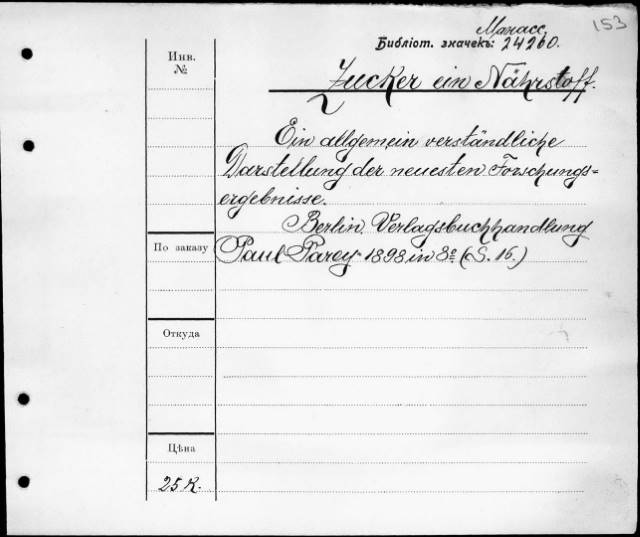 153
Манасс.
Библіот. значекъ: 24260.
Инв.
№
Zucker ein Nährstoff.
Ein allgemein verständliche
Darstellung der neuesten Forschungs=
ergebnisse.
Berlin Verlagsbuchhandlung
По заказу
Paul Parey 1898 in 8º (S. 16.)
Откуда
Цѣна
25 к.